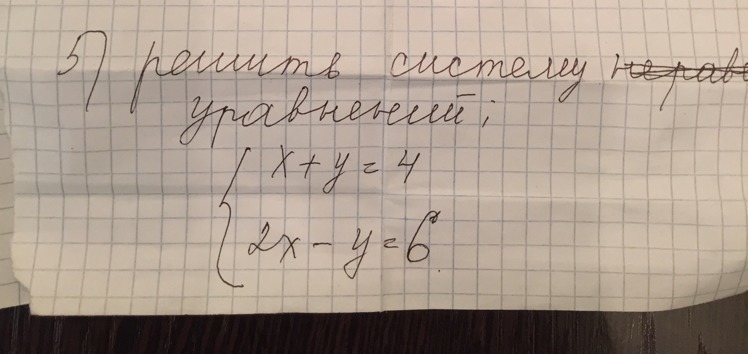 5) решить систему нерав
уравнений;
x + y = 4
2x - y = 6